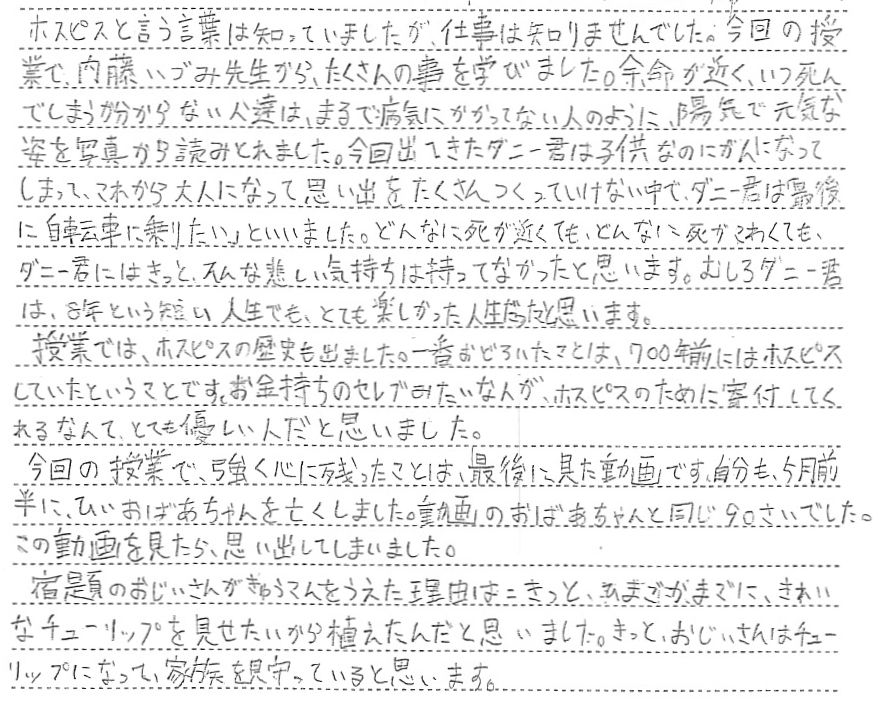 ホスピスと言う言葉は知っていましたが、仕事は知りませんでした。今回の授
業で、内藤いづみ先生から、たくさんの事を学びました。余命が近く、いつ死ん
でしまうか分からない人達は、まるで病気にかかってない人のように、陽気で元気な
姿を写真から読みとれました。今回出てきたダニー君は子供なのにがんになって
しまって、これから大人になって思い出をたくさんつくっていけない中で、ダニー君は「最後
に自転車に乗りたい」といいました。どんなに死が近くても、どんなに死がこわくても、
ダニー君にはきっと、そんな悲しい気持ちは持ってなかったと思います。むしろダニー君
は、8年という短い人生でも、とても楽しかった人生だったと思います。
授業では、ホスピスの歴史も出ました。一番おどろいたことは、700年前にはホスピス
していたということです。お金持ちのセレブみたいなんが、ホスピスのために寄付してく
れるなんて、とても優しい人だと思いました。
今回の授業で、強く心に残ったことは、「最後に見た動画」です。自分も、5月前
半に、ひいおばあちゃんを亡くしました。動画のおばあちゃんと同じ90さいでした。
この動画を見たら、思い出してしまいました。
宿題のおじいさんがきゅうこんをうえた理由は、きっと、まごがまでに、きれい
なチューリップを見せたいから植えたんだと思いました。きっと、おじいさんはチュー
リップになって、家族を見守っていると思います。